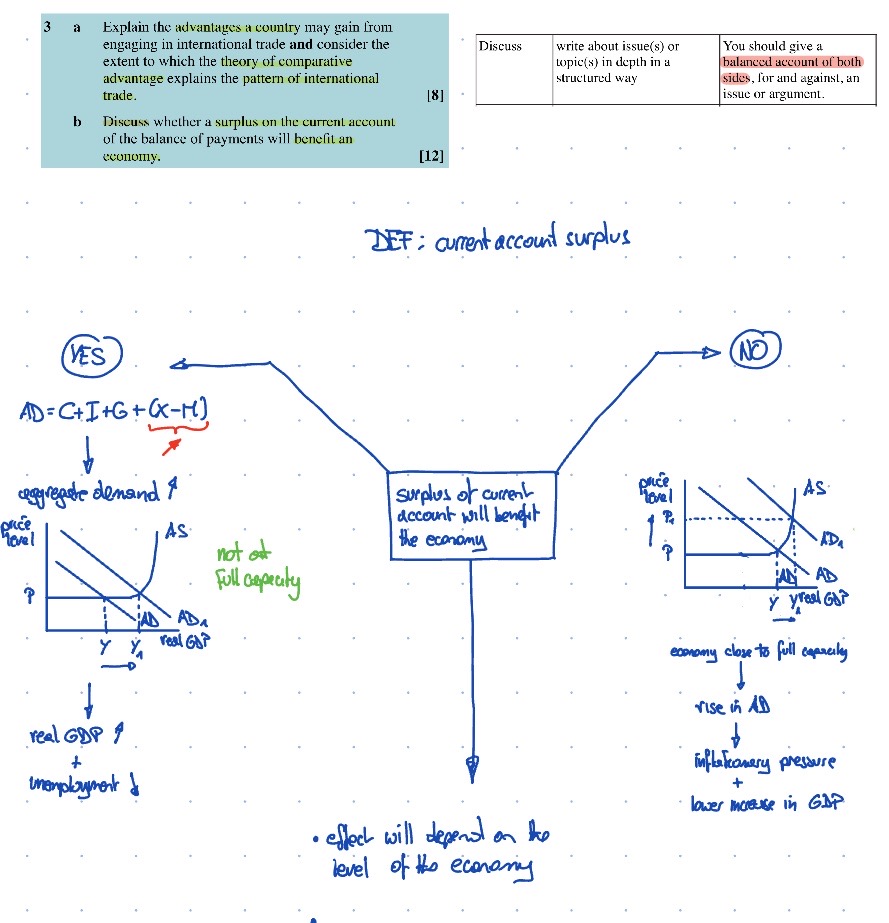 3 a Explain the advantages a country may gain from
engaging in international trade and consider the
extent to which the theory of comparative
advantage explains the pattern of international
trade. [8]
b Discuss whether a surplus on the current account
of the balance of payments will benefit an
economy. [12]
Discuss
write about issue(s) or
topic(s) in depth in a
structured way
You should give a
balanced account of both
sides, for and against, an
issue or argument.
DEF : current account surplus
YES
AD = C+I+G+(X-M)
aggregate demand ↑
price
level
AS
P
AD
AD₁
Y Y₁ real GDP
not at
full capacity
real GDP ↑
+
unemployment ↓
surplus of current
account will benefit
the economy
NO
price
level
AS
P₁
P
AD₁
AD
AD
Y Y₁ real GDP
economy close to full capacity
rise in AD
inflationary pressure
+
lower increase in GDP
• effect will depend on the
level of the economy